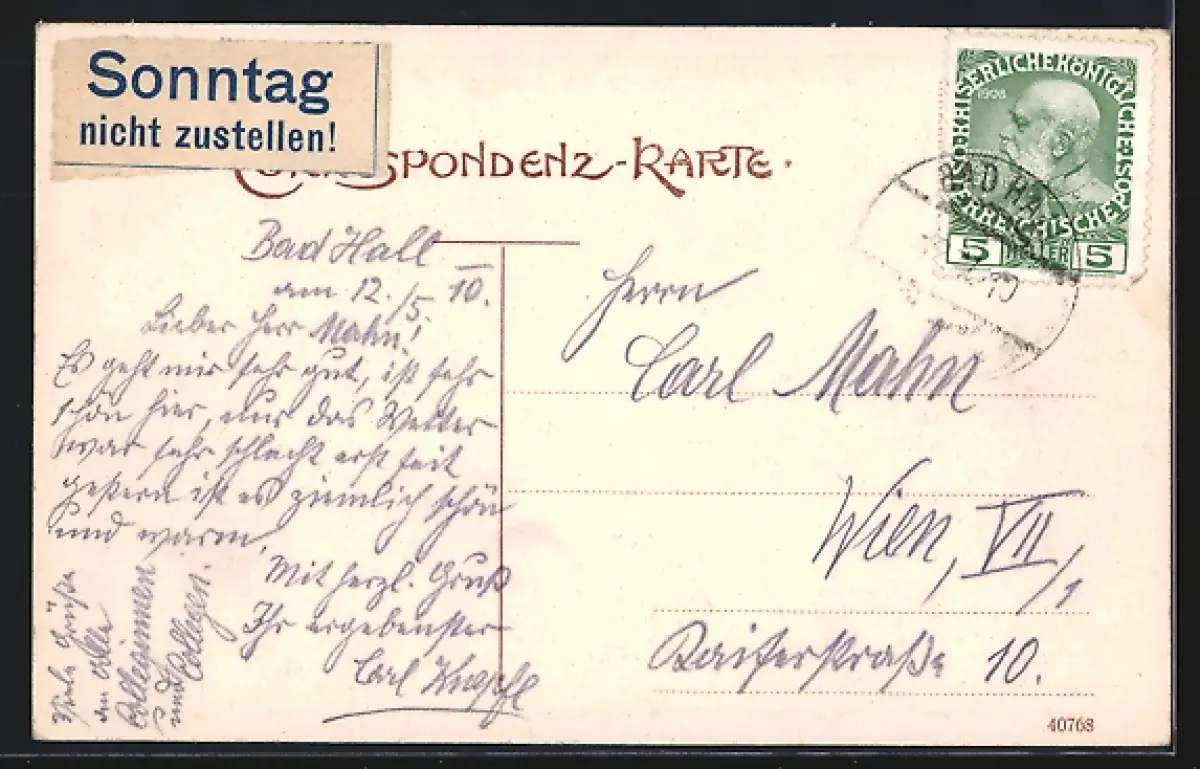 Sonntag
nicht zustellen!
CORRESPONDENZ-KARTE.
KAISERLICHE KÖNIGLICHE ÖSTERREICHISCHE POST
1908
5 HELLER 5
BAD HA
10
Bad Hall
am 12./5. 10.
Lieber Herr Mahn!
Es geht mir sehr gut, ist sehr
schön hier, nur das Wetter
war sehr schlecht erst seit
gestern ist es ziemlich schön
und warm.
Mit herzl. Gruß
Ihr ergebenster
Carl
Viele Grüße
an alle
Colleginnen
und Collegen.
Herrn
Carl Mahn
Wien, VII/1
Kaiserstraße 10.
40768